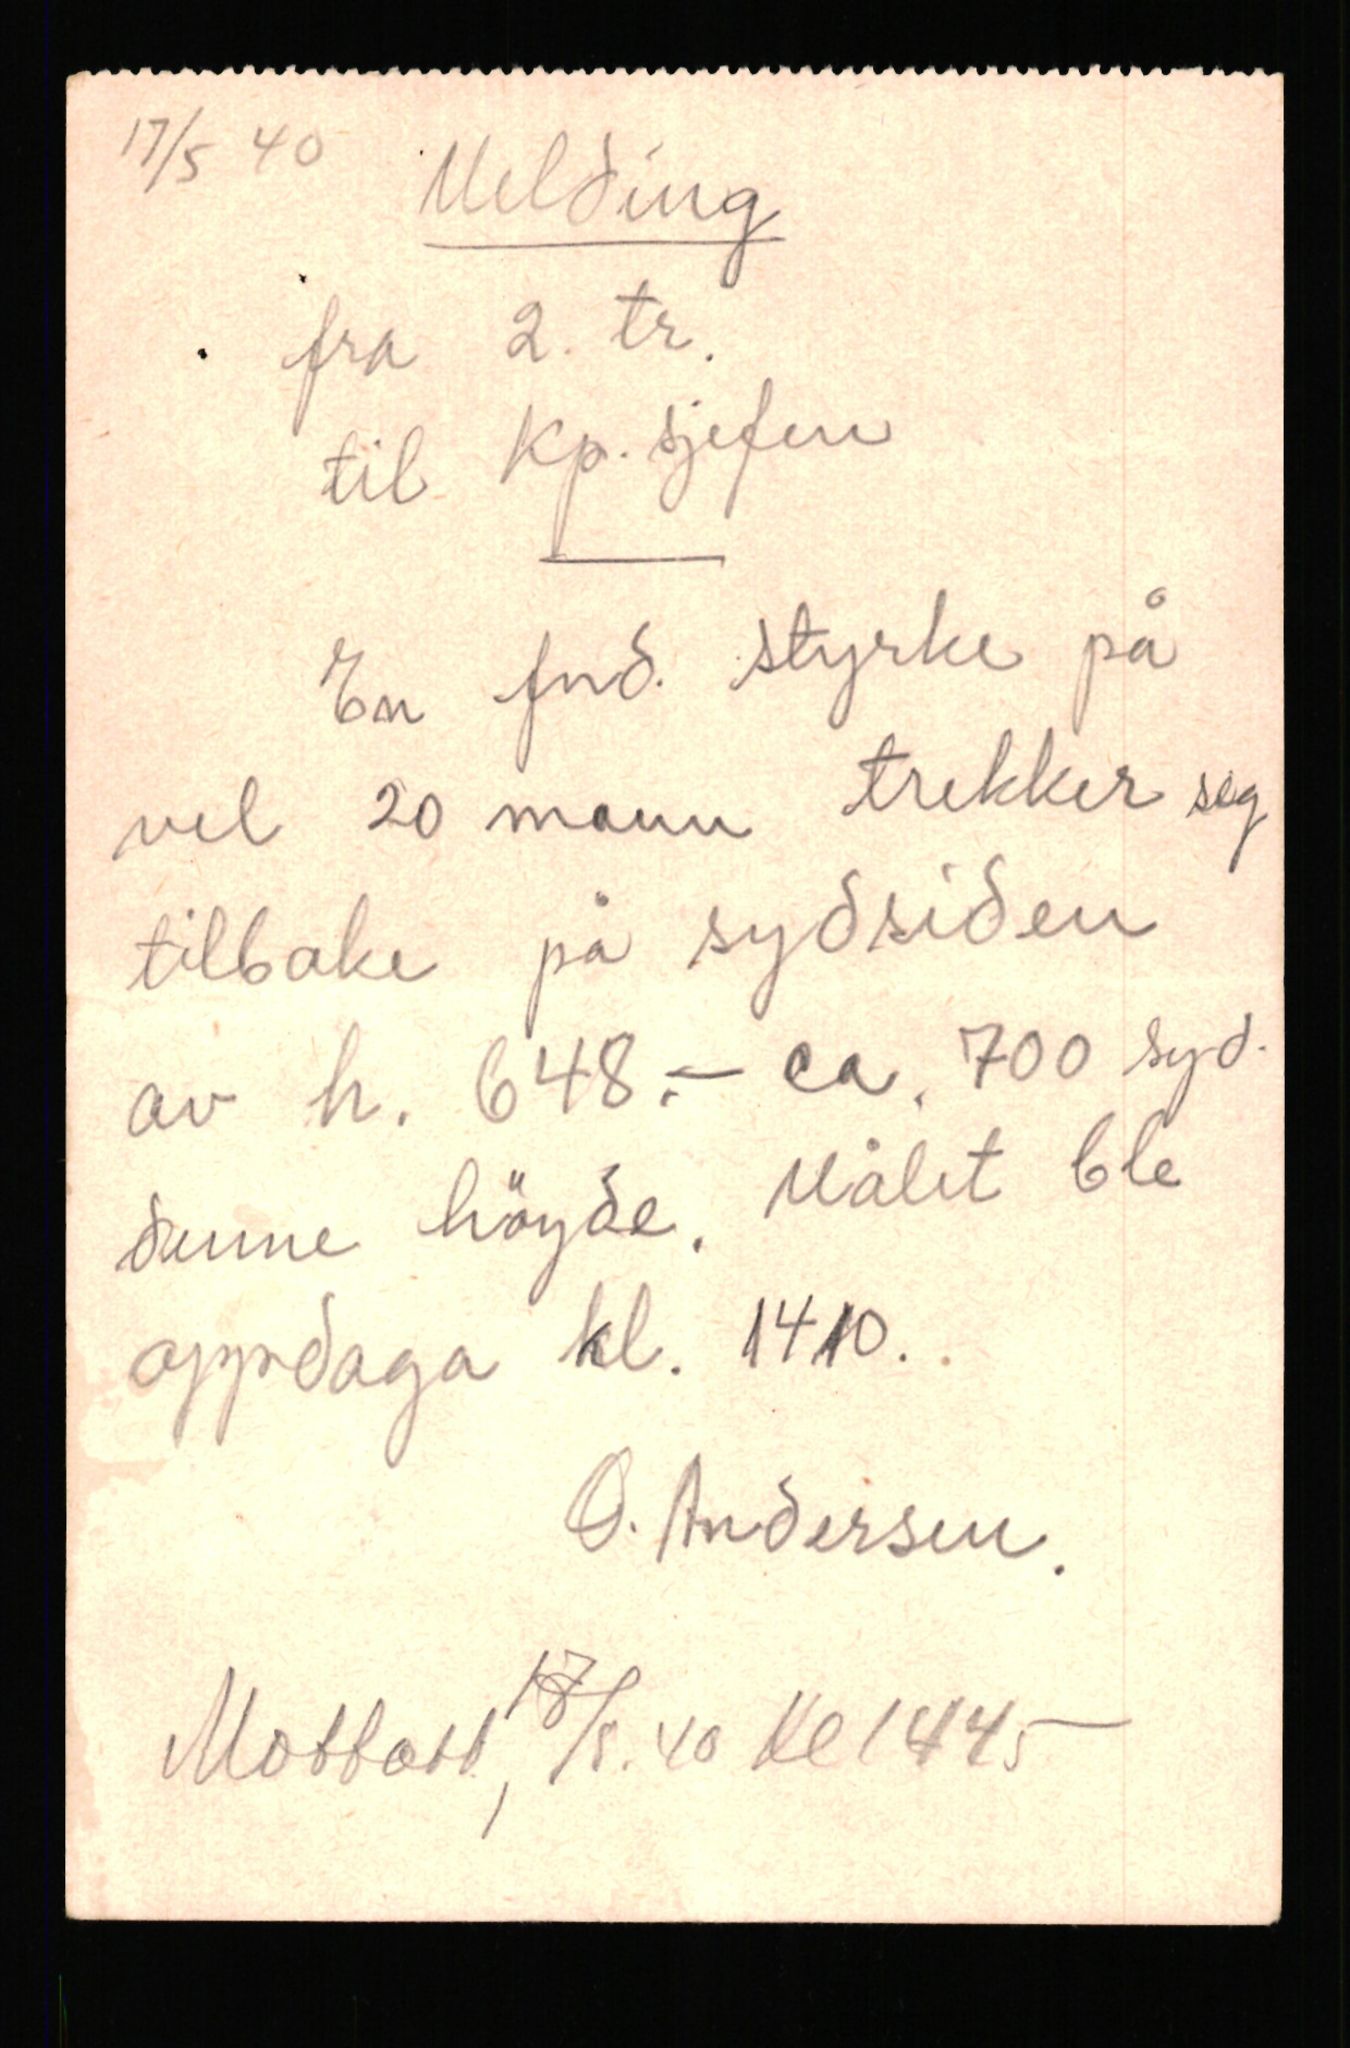 17/5 40
Melding
fra 2. tr.
til Kp. sjefen
En fnd. styrke på
vel 20 mann trekker seg
tilbake på sydsiden
av h. 648.- ca. 700 syd.
denne höyde. Målet ble
oppdaga kl. 1410.
O. Andersen.
Mottatt, 17/5. 40 Kl 1445